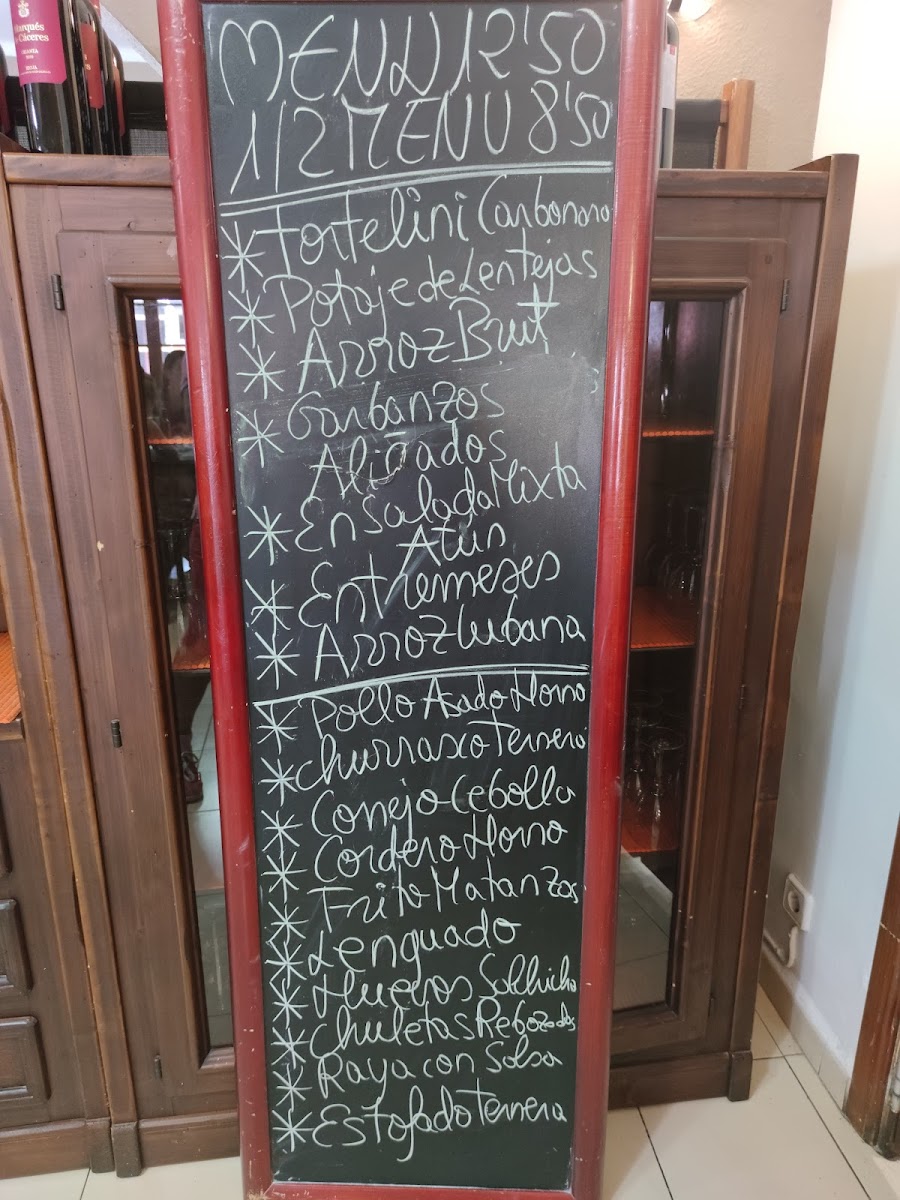 Marqués
de Cáceres
MENU 12'50
1/2 MENU 8'50
* Tortelini Carbonara
* Potaje de Lentejas
* Arroz Brut
* Garbanzos
Aliñados
* Ensalada Mixta
Atun
* Entremeses
* Arroz Cubana
* Pollo Asado Horno
* Churrasco Ternera
* Conejo Cebolla
* Cordero Horno
* Frito Matanzas
* Lenguado
* Huevos Salchicha
* Chuletas Rebozadas
* Raya con Salsa
* Estofado Ternera